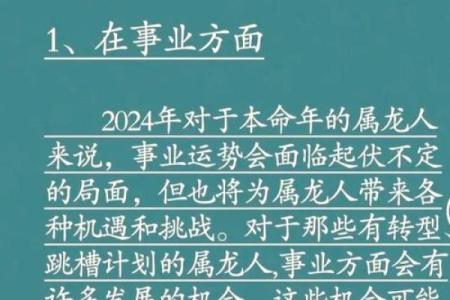 1、在事业方面
2024年对于本命年的属龙人
来说，事业运势会面临起伏不定
的局面，但也将为属龙人带来各
种机遇和挑战。对于那些有转型
跳槽计划的属龙人,事业方面会有
许多发展的机会，这些机会可能